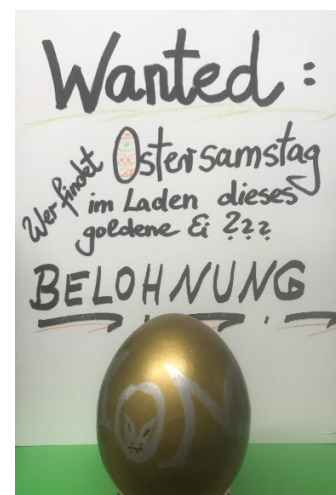 Wanted :
Wer findet Ostersamstag
im Laden dieses
goldene Ei ???
BELOHNUNG
LON